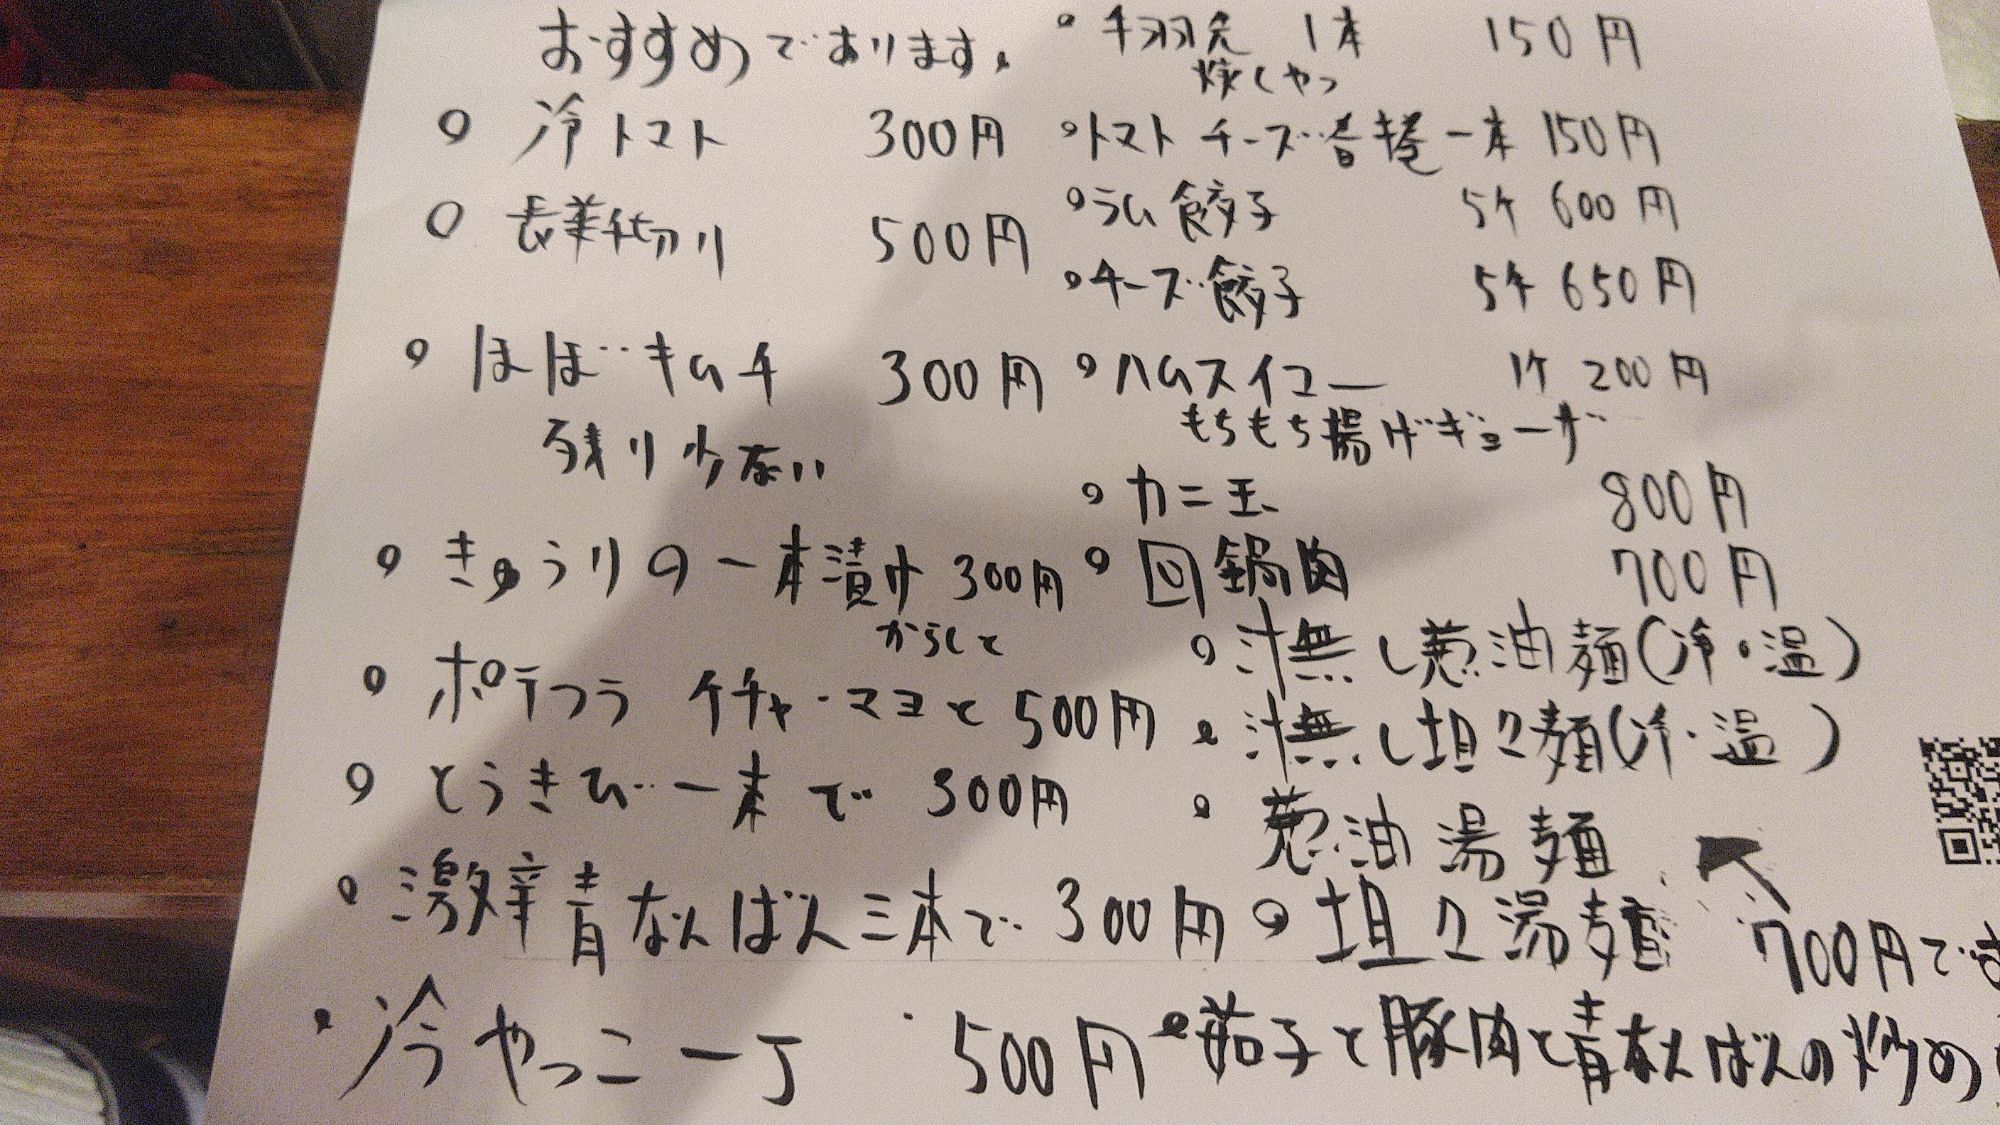 おすすめであります。
○ 冷トマト 300円
○ 長芋千切り 500円
○ ほぼキムチ 300円
残り少ない
○ きゅうりの一本漬け 300円
からしと
○ ポテフラ ケチャ・マヨと 500円
○ とうきび一本で 300円
○ 激辛青なんばん三本で 300円
・冷やっこ一丁 500円
○ 手羽先 1本 150円
焼しやつ
○ トマトチーズ春巻 一本 150円
○ ラム餃子 5ケ 600円
○ チーズ餃子 5ケ 650円
○ ハムスイコー 1ケ 200円
もちもち揚げギョーザ
○ カニ玉 800円
○ 回鍋肉 700円
○ 汁無し葱油麺(冷・温)
・汁無し坦々麺(冷・温)
・葱油湯麺
○ 坦々湯麺 700円です
・茄子と豚肉と青なんばんの炒め